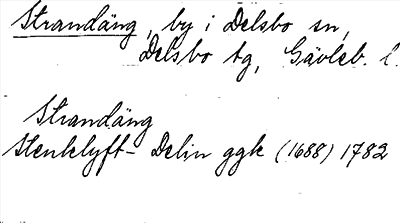 Strandäng, by i Delsbo sn,
Delsbo tg, Gävleb. l.
Strandäng
Stenklyft- Delin ggk (1688) 1782